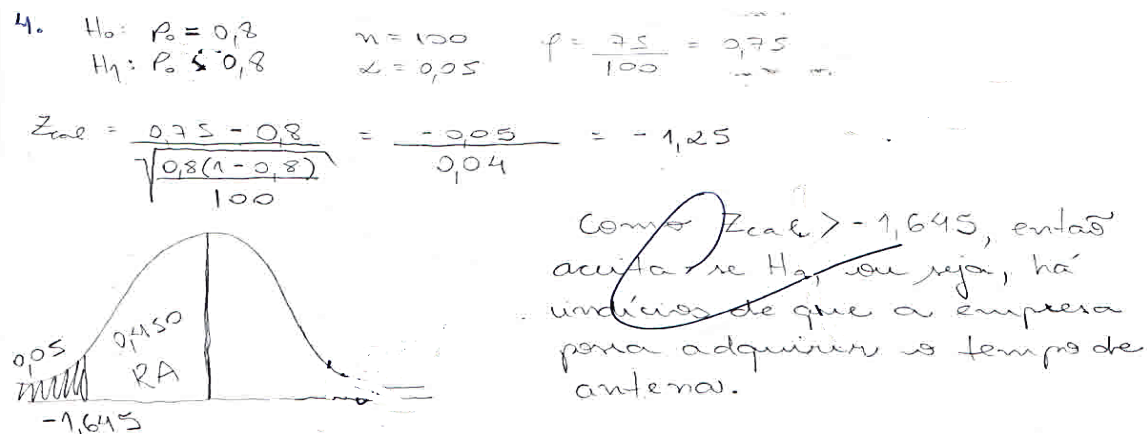 4. H₀: P₀ = 0,8 n = 100 p = 75/100 = 0,75
H₁: P₀ < 0,8 α = 0,05
Zcal = (0,75 - 0,8)/√(0,8(1-0,8)/100) = -0,05/0,04 = -1,25
Como Zcal > -1,645, então
aceita-se H₀, ou seja, há
indícios de que a empresa
possa adquirir o tempo de
antena.
0,05
0,450
RA
-1,645